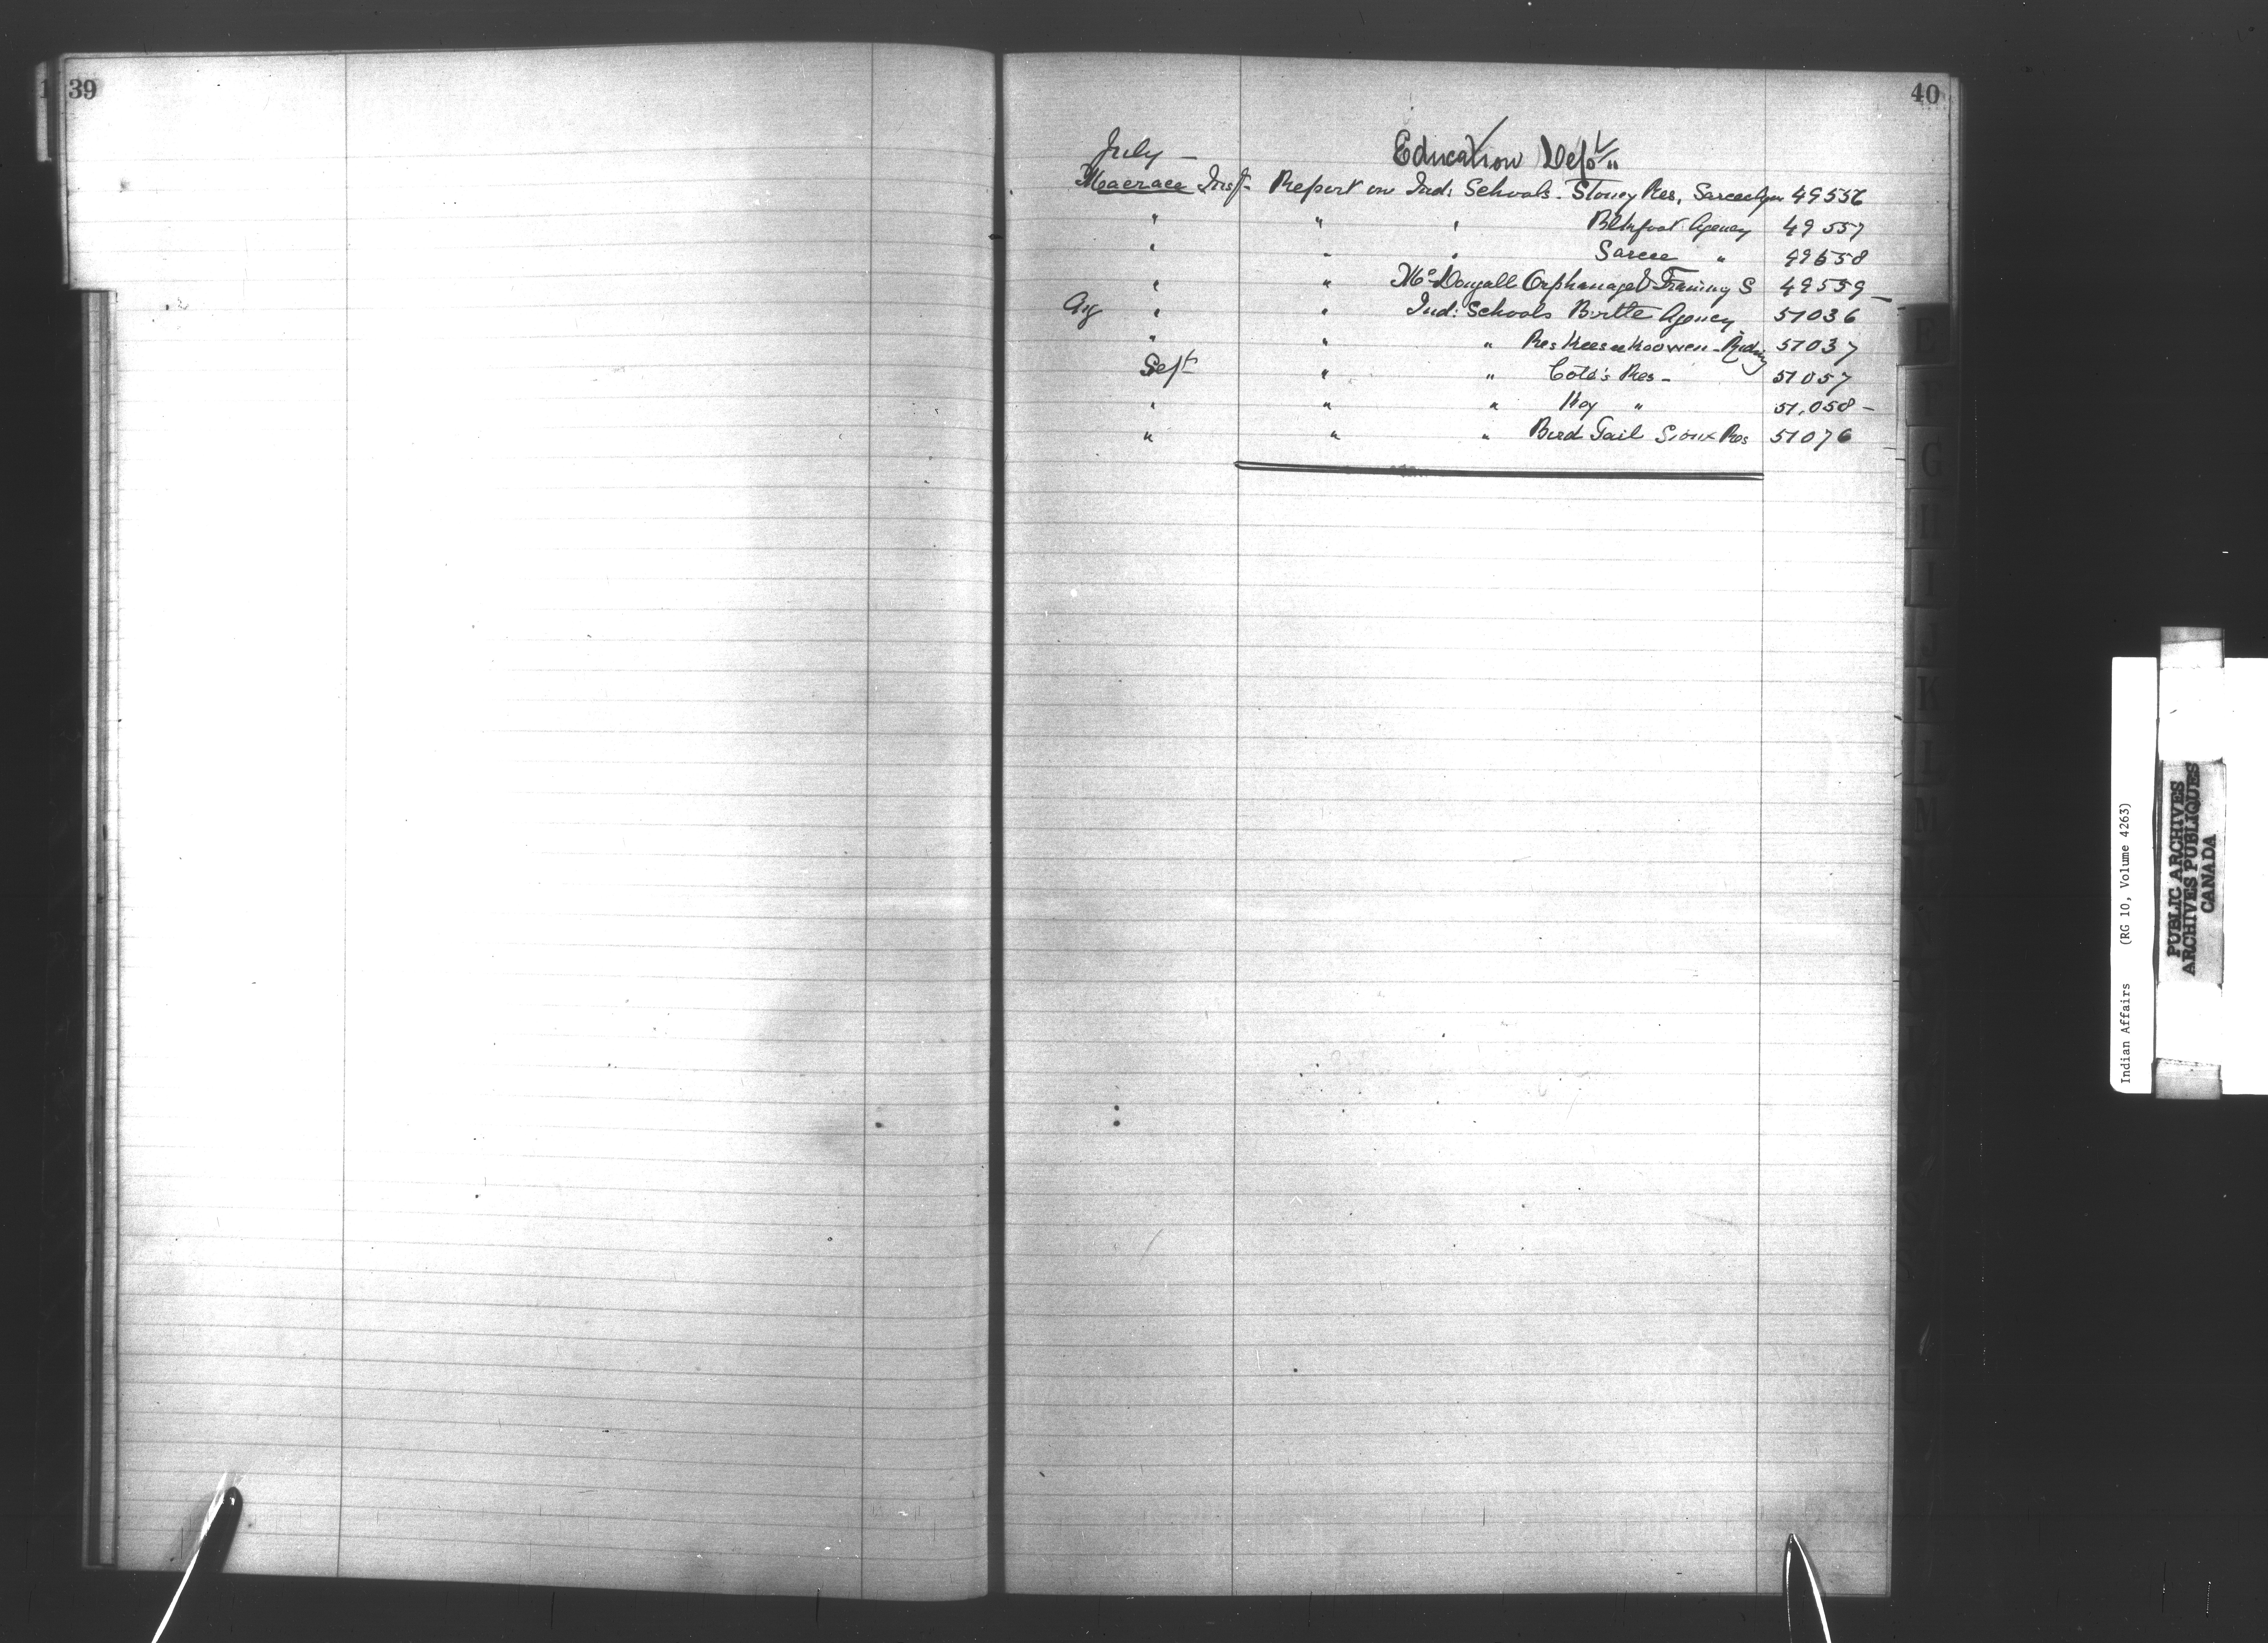 39
40
July - Education Dep't "
Macrae Insp. Report on Ind: Schools. Stoney Res, Sarcee Agen 49556
" " " Blkfoot Agency 49557
" " " Sarcee " 49558
" " McDougall Orphanage & Training S 49559 -
Aug " " Ind: Schools Birtle Agency 51036
" " " Res Keeseekoowen - Riding 51037
Sept " " Coté's Res - 51057
" " " Key " 51,058 -
" " " Bird Tail Sioux Res 51076
E
F
G
H
I
J
K
L
M
Indian Affairs (RG 10, Volume 4263)
PUBLIC ARCHIVES
ARCHIVES PUBLIQUES
CANADA